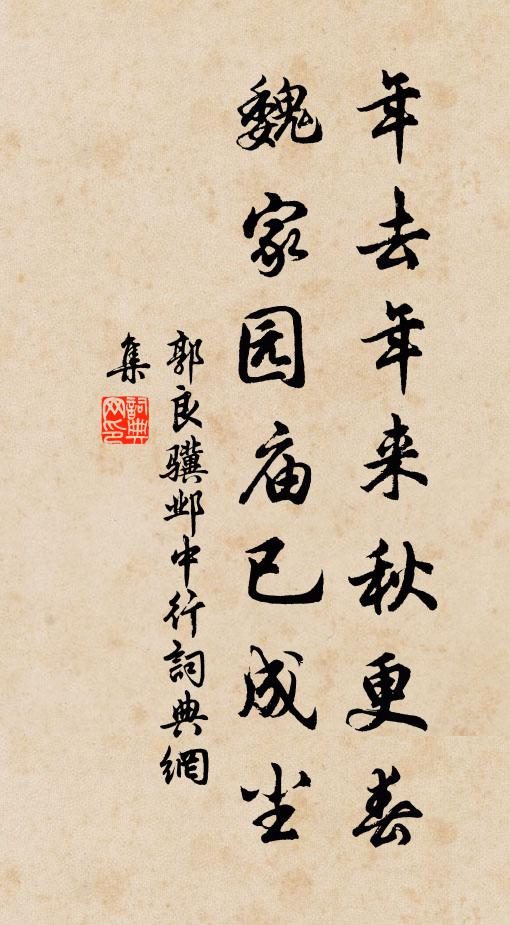 年去年来秋更春
魏家园庙已成尘
郭良骥邺中行詞典網
集
詞典
网印